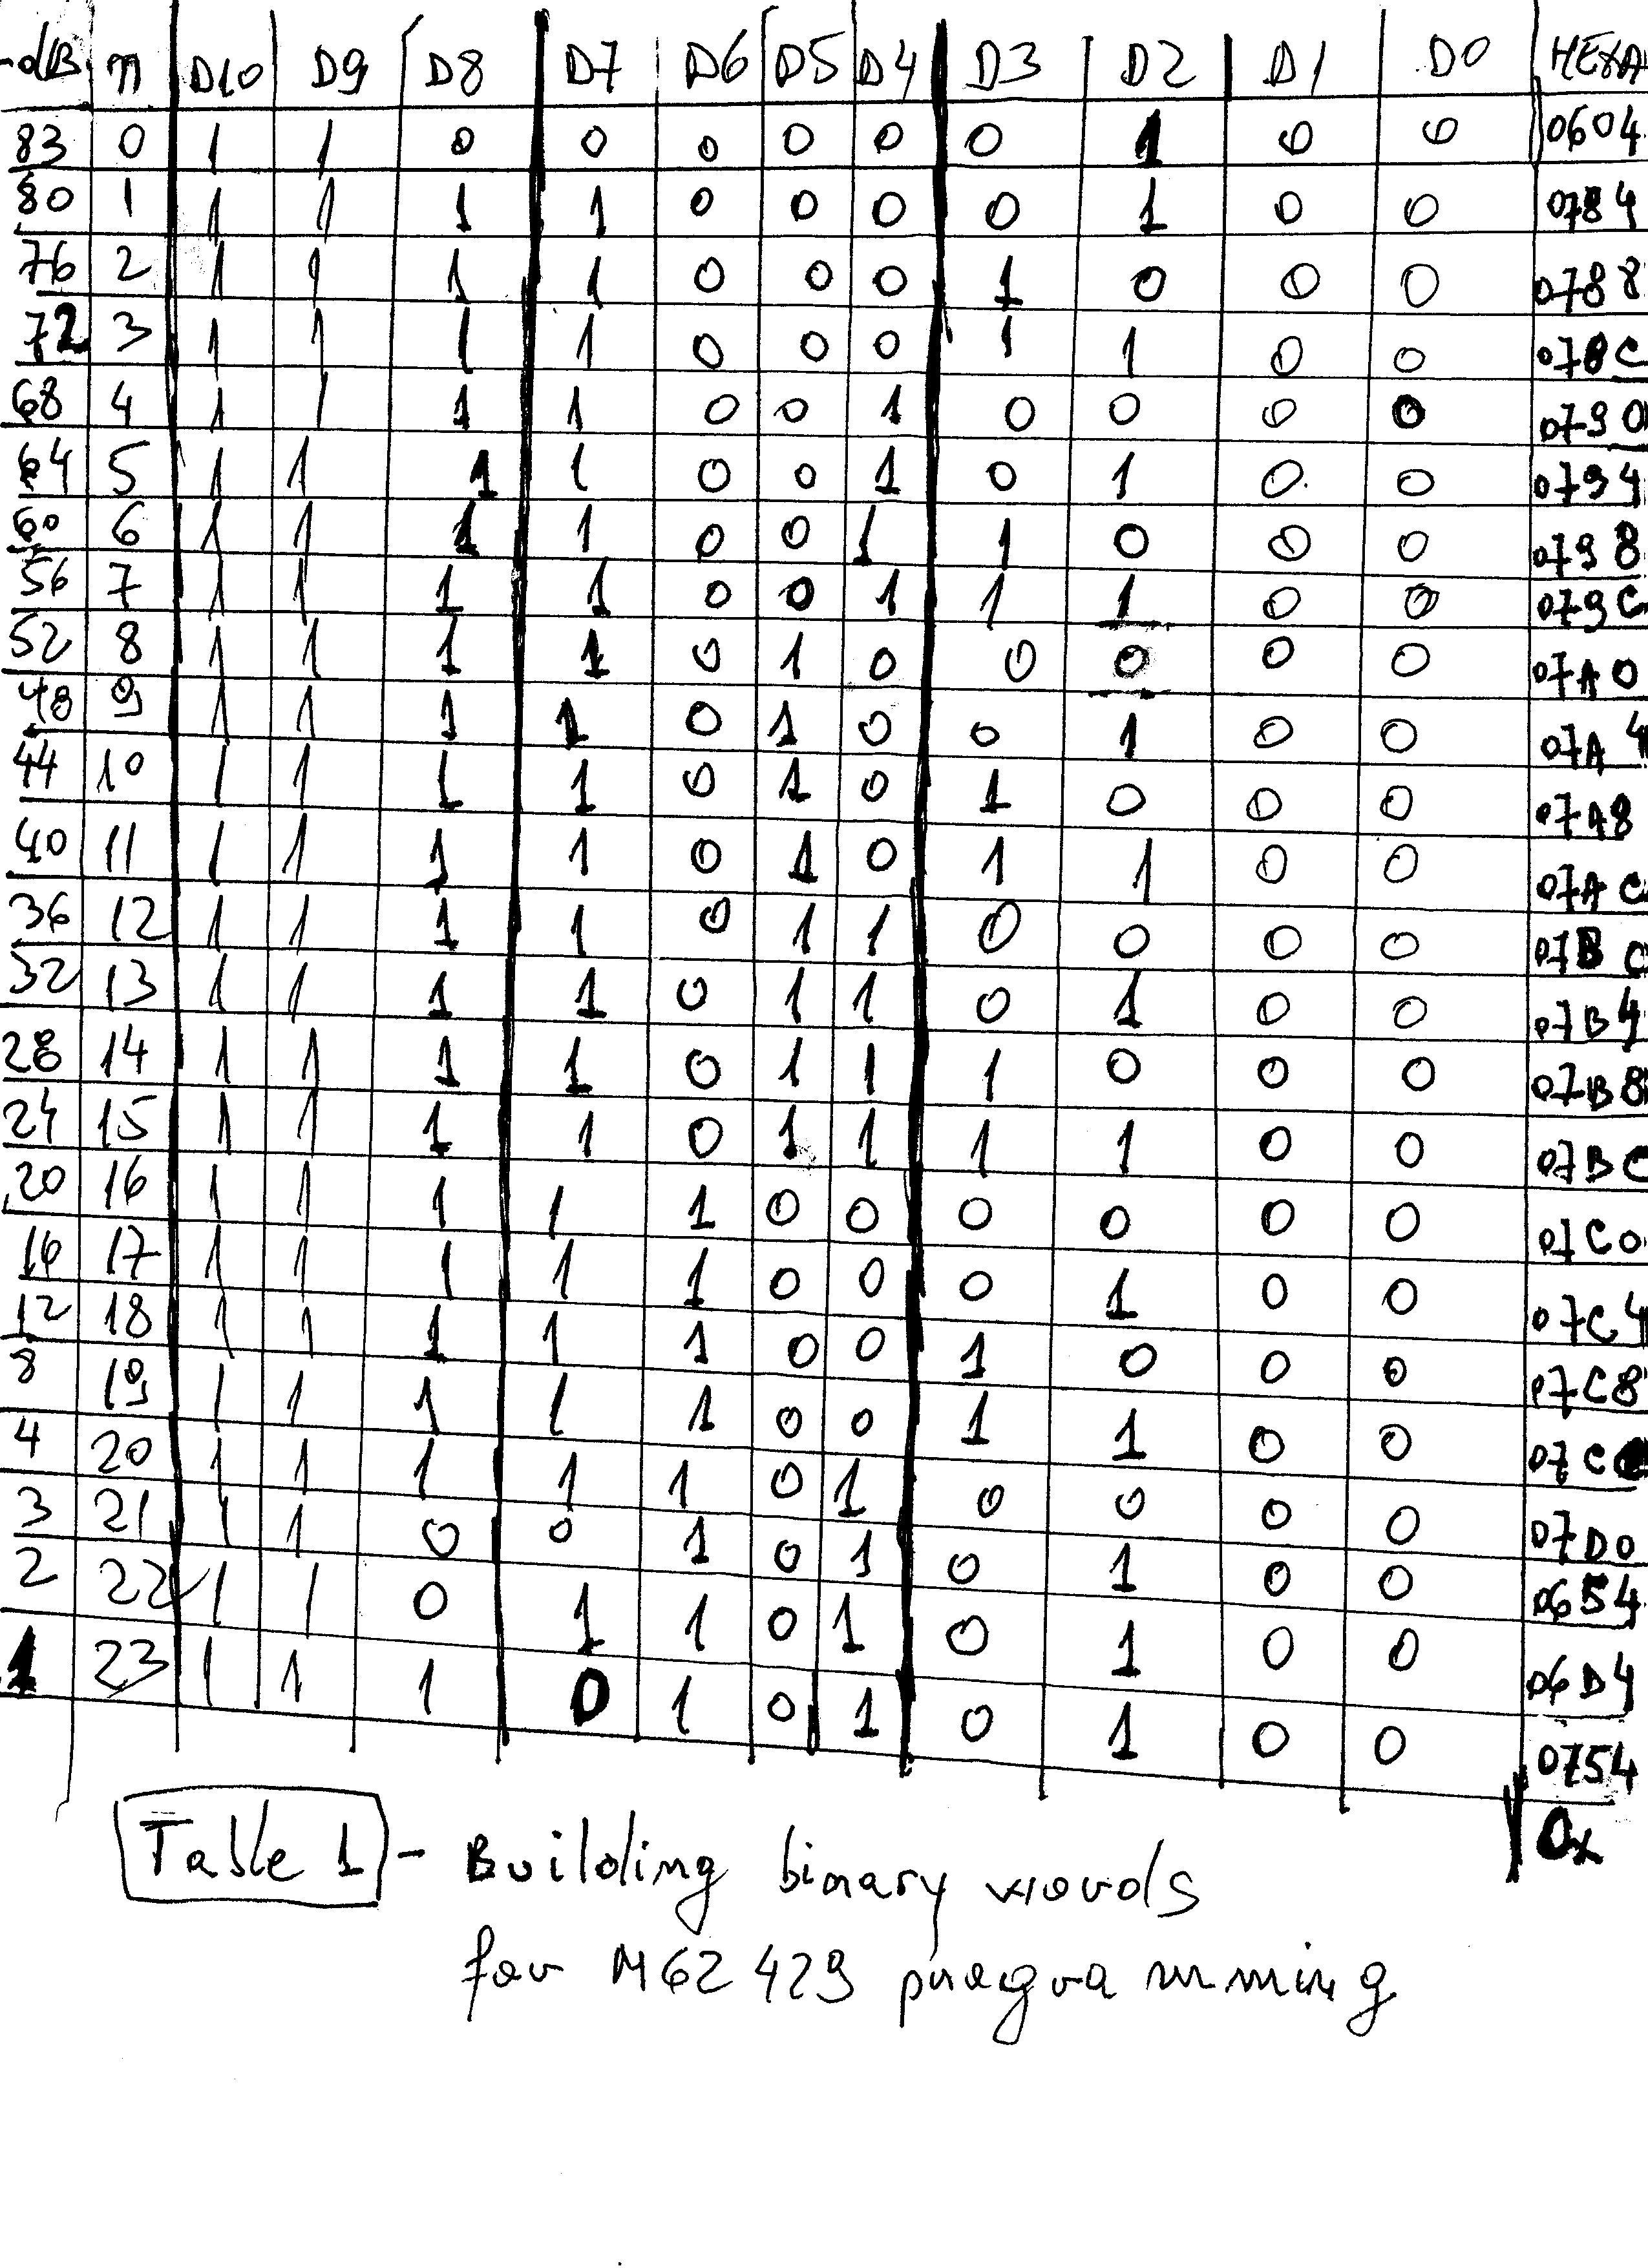 -dB n D10 D9 D8 D7 D6 D5 D4 D3 D2 D1 D0 HEXA
83 0 1 1 0 0 0 0 0 0 1 0 0 0604
80 1 1 1 1 1 0 0 0 0 1 0 0 0784
76 2 1 1 1 1 0 0 0 1 0 0 0 0788
72 3 1 1 1 1 0 0 0 1 1 0 0 078C
68 4 1 1 1 1 0 0 1 0 0 0 0 0790
64 5 1 1 1 1 0 0 1 0 1 0 0 0794
60 6 1 1 1 1 0 0 1 1 0 0 0 0798
56 7 1 1 1 1 0 0 1 1 1 0 0 079C
52 8 1 1 1 1 0 1 0 0 0 0 0 07A0
48 9 1 1 1 1 0 1 0 0 1 0 0 07A4
44 10 1 1 1 1 0 1 0 1 0 0 0 07A8
40 11 1 1 1 1 0 1 0 1 1 0 0 07AC
36 12 1 1 1 1 0 1 1 0 0 0 0 07B0
32 13 1 1 1 1 0 1 1 0 1 0 0 07B4
28 14 1 1 1 1 0 1 1 1 0 0 0 07B8
24 15 1 1 1 1 0 1 1 1 1 0 0 07BC
20 16 1 1 1 1 1 0 0 0 0 0 0 07C0
16 17 1 1 1 1 1 0 0 0 1 0 0 07C4
12 18 1 1 1 1 1 0 0 1 0 0 0 07C8
8 19 1 1 1 1 1 0 0 1 1 0 0 07CC
4 20 1 1 1 1 1 0 1 0 0 0 0 07D0
3 21 1 1 0 0 1 0 1 0 1 0 0 0654
2 22 1 1 0 1 1 0 1 0 1 0 0 06D4
1 23 1 1 1 0 1 0 1 0 1 0 0 0754
0x
Table 1 - Building binary words
for M62429 programming